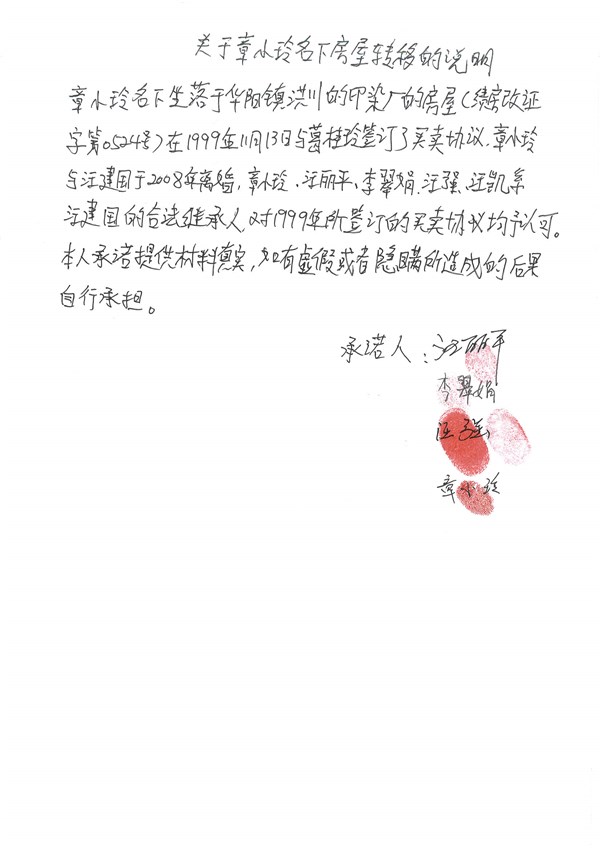 关于章小玲名下房屋转移的说明
章小玲名下坐落于华阳镇洪川的印染厂的房屋(绩房改证
字第0524号)在1999年11月13日与葛桂玲签订了买卖协议.章小玲
与汪建国于2008年离婚,章小玲、汪丽平、李翠娟、汪强、汪凯系
汪建国的合法继承人,对1999年所签订的买卖协议均予认可。
本人承诺提供材料真实,如有虚假或者隐瞒所造成的后果
自行承担。
承诺人:汪丽平
李翠娟
汪强
章小玲